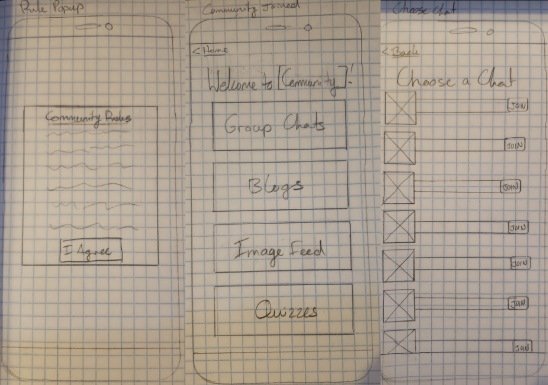 Rule Popup
Community Rules
I Agree
Community Joined
< Home
Welcome to [Community]!
Group Chats
Blogs
Image Feed
Quizzes
Choose Chat
< Back
Choose a Chat
JOIN
JOIN
JOIN
JOIN
JOIN
JOIN
JOIN